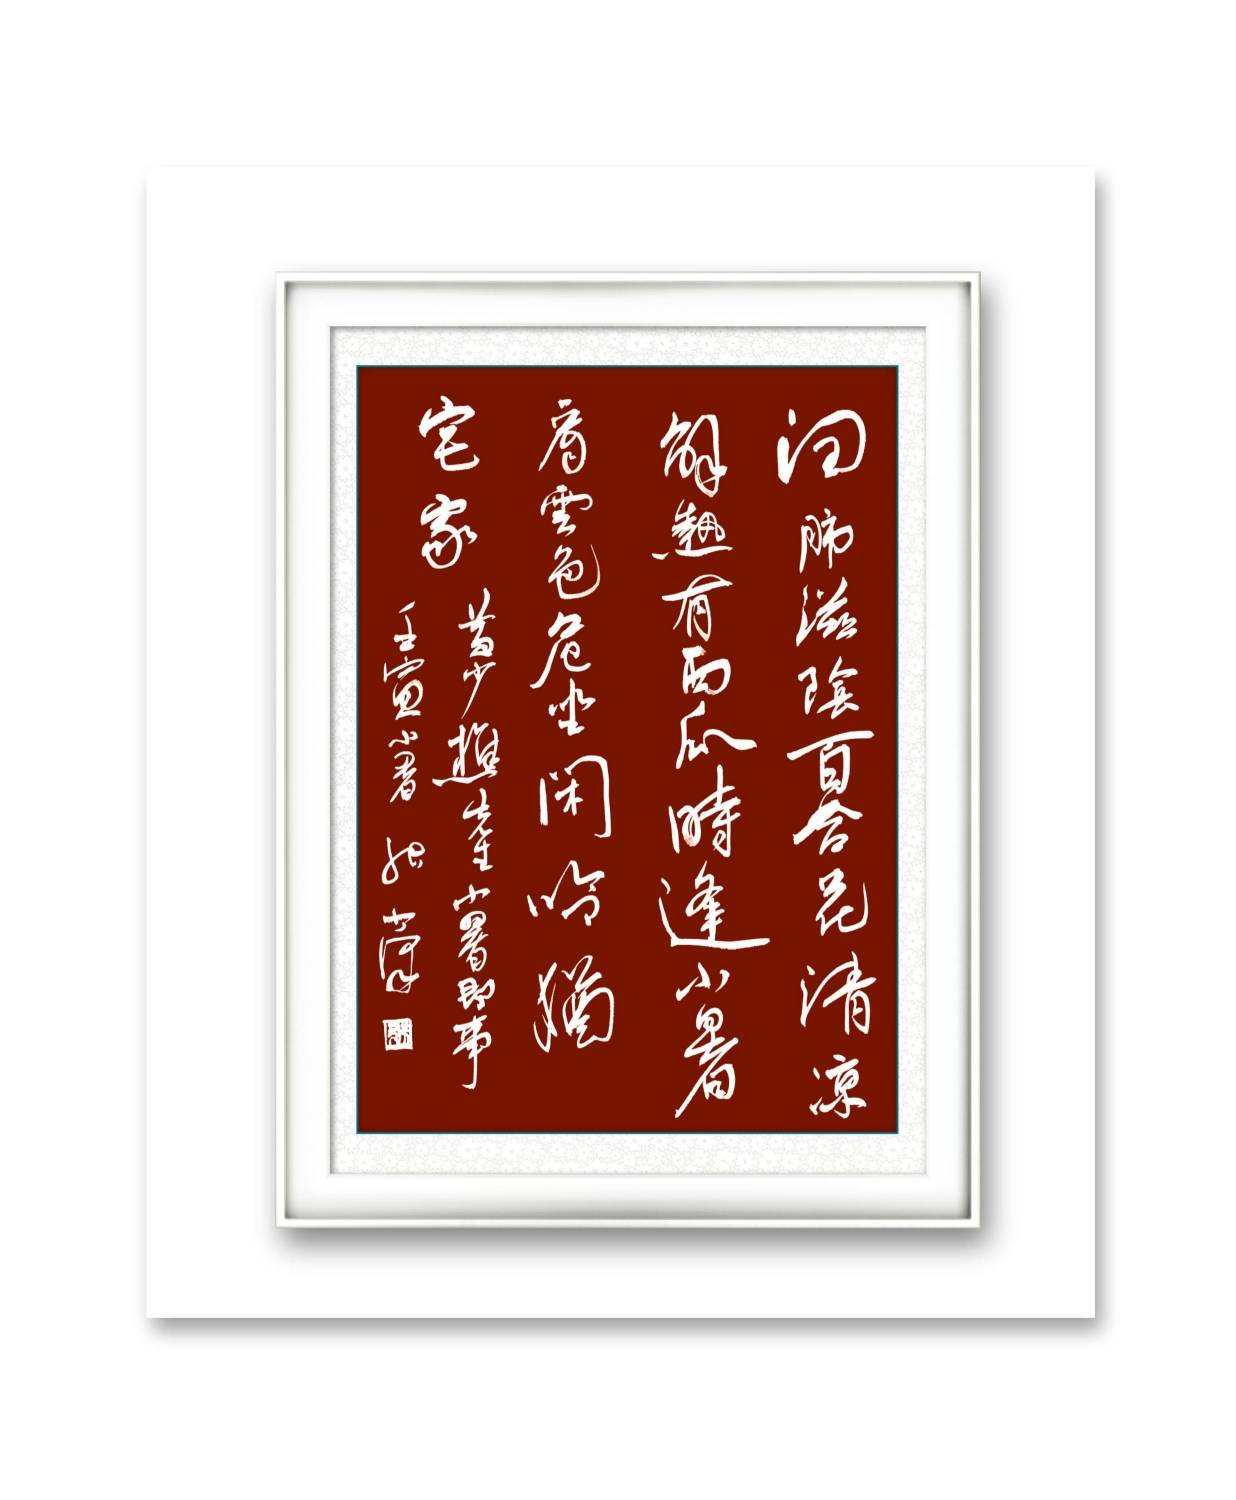 润肺滋陰百合花清凉
解熱有西瓜時逢小暑
看雲色危坐闲吟猶
宅家
黄少樵先生小暑即事
壬寅小暑